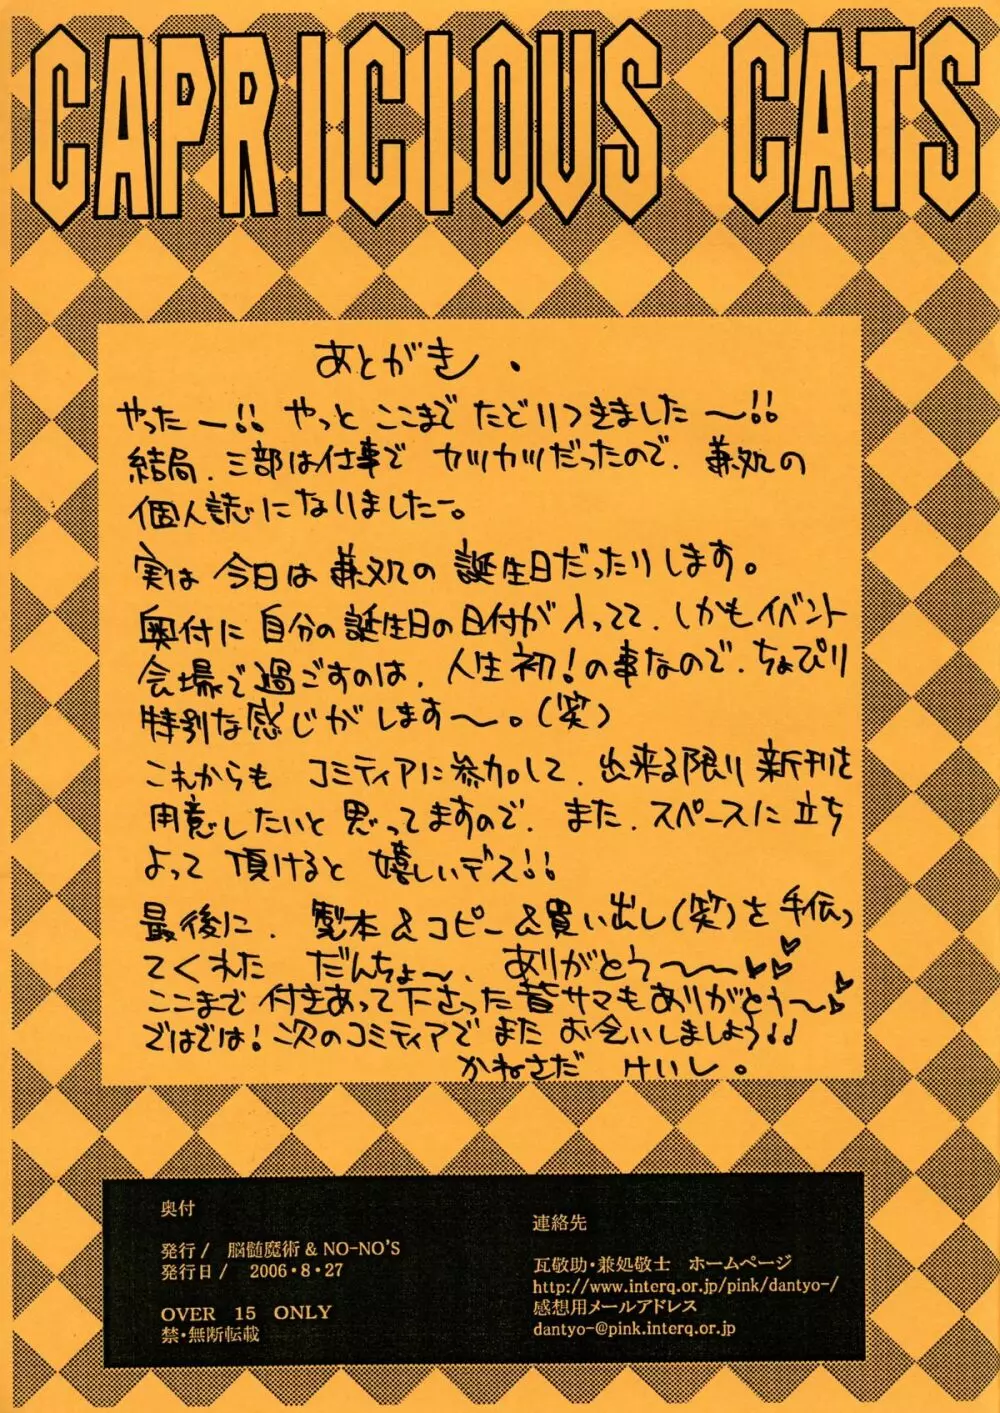 CAPRICIOUS CATS
あとがき.
やったー!! やっと ここまで たどりつきました〜!!
結局、三部は仕事で カツカツだったので、兼処の
個人誌になりましたー。
実は 今日は 兼処の 誕生日だったりします。
奥付に 自分の誕生日の日付が 入ってて、しかもイベント
会場で過ごすのは、人生初!の事なので、ちょぴり
特別な感じがします〜。(笑)
これからも コミティアに参加して、出来る限り 新刊を
用意したいと 思ってますので、また、スペースに 立ち
よって 頂けると 嬉しいデス!!
最後に、製本&コピー&買い出し(笑)を 手伝っ
てくれた だんちょ〜、ありがとう〜〜♥♥
ここまで 付きあって下さった 皆サマも ありがとう〜♥
ではでは! 次のコミティアで また お会いしましょう!!
かねさだ けいし。
奥付
発行/ 脳髄魔術 & NO-NO'S
発行日/ 2006・8・27
OVER 15 ONLY
禁・無断転載
連絡先
瓦敬助・兼処敬士 ホームページ
http://www.interq.or.jp/pink/dantyo-/
感想用メールアドレス
dantyo-@pink.interq.or.jp